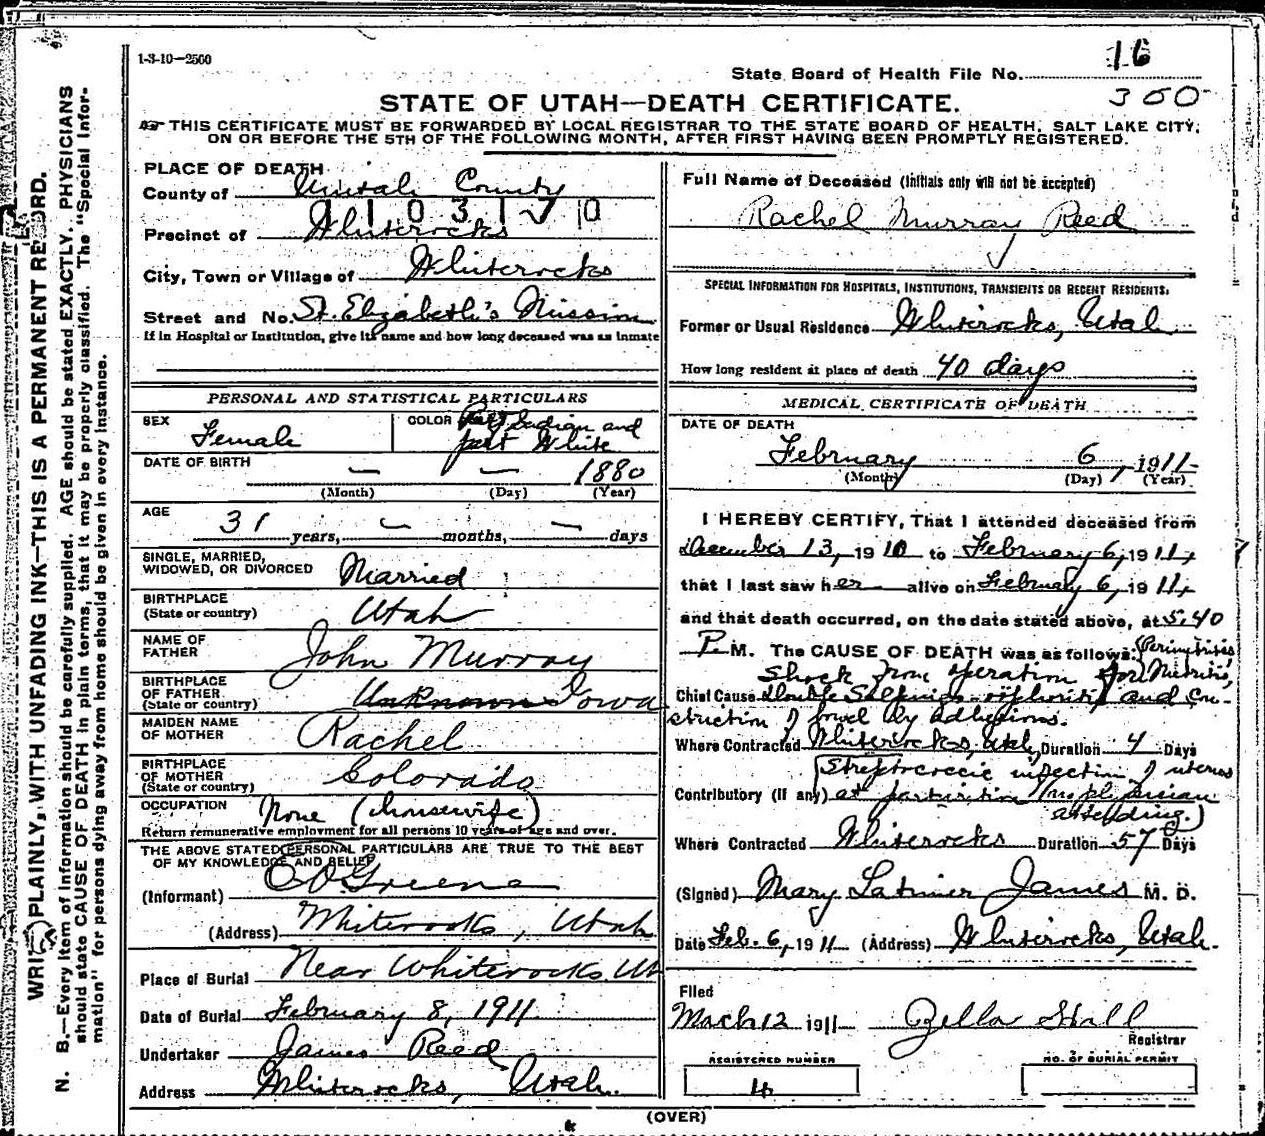 1-3-10—2500
State Board of Health File No. 16
350
STATE OF UTAH—DEATH CERTIFICATE.
THIS CERTIFICATE MUST BE FORWARDED BY LOCAL REGISTRAR TO THE STATE BOARD OF HEALTH, SALT LAKE CITY,
ON OR BEFORE THE 5TH OF THE FOLLOWING MONTH, AFTER FIRST HAVING BEEN PROMPTLY REGISTERED.
WRITE PLAINLY, WITH UNFADING INK—THIS IS A PERMANENT RECORD.
N. B.—Every item of information should be carefully supplied. AGE should be stated EXACTLY. PHYSICIANS
should state CAUSE OF DEATH in plain terms, that it may be properly classified. The "Special Infor-
mation" for persons dying away from home should be given in every instance.
PLACE OF DEATH
County of Uintah County
Precinct of Whiterocks
City, Town or Village of Whiterocks
Street and No. St. Elizabeth's Mission
If in Hospital or Institution, give its name and how long deceased was an inmate
PERSONAL AND STATISTICAL PARTICULARS
SEX Female
COLOR Part Indian and
part White
DATE OF BIRTH — — 1880
(Month) (Day) (Year)
AGE 31 years, — months, — days
SINGLE, MARRIED,
WIDOWED, OR DIVORCED Married
BIRTHPLACE
(State or country) Utah
NAME OF
FATHER John Murray
BIRTHPLACE
OF FATHER
(State or country) Unknown Iowa
MAIDEN NAME
OF MOTHER Rachel
BIRTHPLACE
OF MOTHER
(State or country) Colorado
OCCUPATION None (housewife)
Return remunerative employment for all persons 10 years of age and over.
THE ABOVE STATED PERSONAL PARTICULARS ARE TRUE TO THE BEST
OF MY KNOWLEDGE AND BELIEF
(Informant) Greene
(Address) Whiterocks, Utah
Place of Burial Near Whiterocks Ut
Date of Burial February 8, 1911
Undertaker James Reed
Address Whiterocks, Utah.
Full Name of Deceased (Initials only will not be accepted)
Rachel Murray Reed
SPECIAL INFORMATION FOR HOSPITALS, INSTITUTIONS, TRANSIENTS OR RECENT RESIDENTS.
Former or Usual Residence Whiterocks, Utah
How long resident at place of death 40 days
MEDICAL CERTIFICATE OF DEATH
DATE OF DEATH
February 6, 1911
(Month) (Day) (Year)
I HEREBY CERTIFY, That I attended deceased from
December 13, 1910 to February 6, 1911,
that I last saw her alive on February 6, 1911,
and that death occurred, on the date stated above, at 5.40
P. M. The CAUSE OF DEATH was as follows:
Shock from operation for Metritis,
Chief Cause double Salpingo-oophoritis and con-
striction of bowel by adhesions.
Where Contracted Whiterocks, Utah, Duration 4 Days
Streptococcic infection of uterus
Contributory (if any) at parturition (no physician
attending.)
Where Contracted Whiterocks Duration 57 Days
(Signed) Mary Latimer James M. D.
Date Feb. 6, 1911 (Address) Whiterocks, Utah.
Filed
March 12 1911 Zella Hall
Registrar
REGISTERED NUMBER
4
NO. OF BURIAL PERMIT
(OVER)